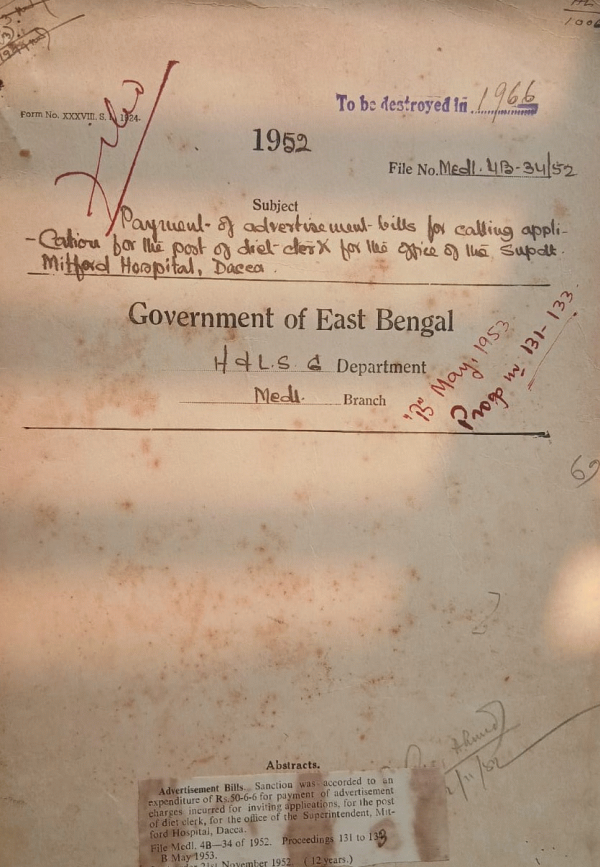 1006
Form No. XXXVIII. S. 1924.
Filed
To be destroyed in 1966
1952
File No. Medl. 4B-34/52
Subject
Payment of advertisement bills for calling appli-
-cation for the post of diet-clerk for the office of the Supdt.
Mitford Hospital, Dacca.
Government of East Bengal
H & L.S.G Department
Medl. Branch
"B" May, 1953
Progs no 131-133.
69
Abstracts.
Advertisement Bills. Sanction was accorded to an
expenditure of Rs. 50-6-6 for payment of advertisement
charges incurred for inviting applications, for the post
of diet clerk, for the office of the Superintendent, Mit-
ford Hospital, Dacca.
File Medl. 4B—34 of 1952. Proceedings 131 to 133
B May 1953.
21st November 1952. (12 years.)